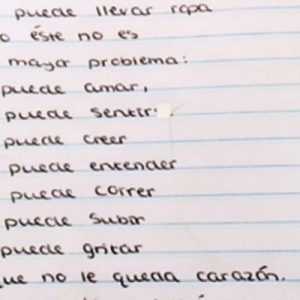 puede llevar ropa
o éste no es
mayor problema:
puede amar,
puede sentir.
puede creer
puede entender
puede correr
puede subir
puede gritar
que no le queda corazón.